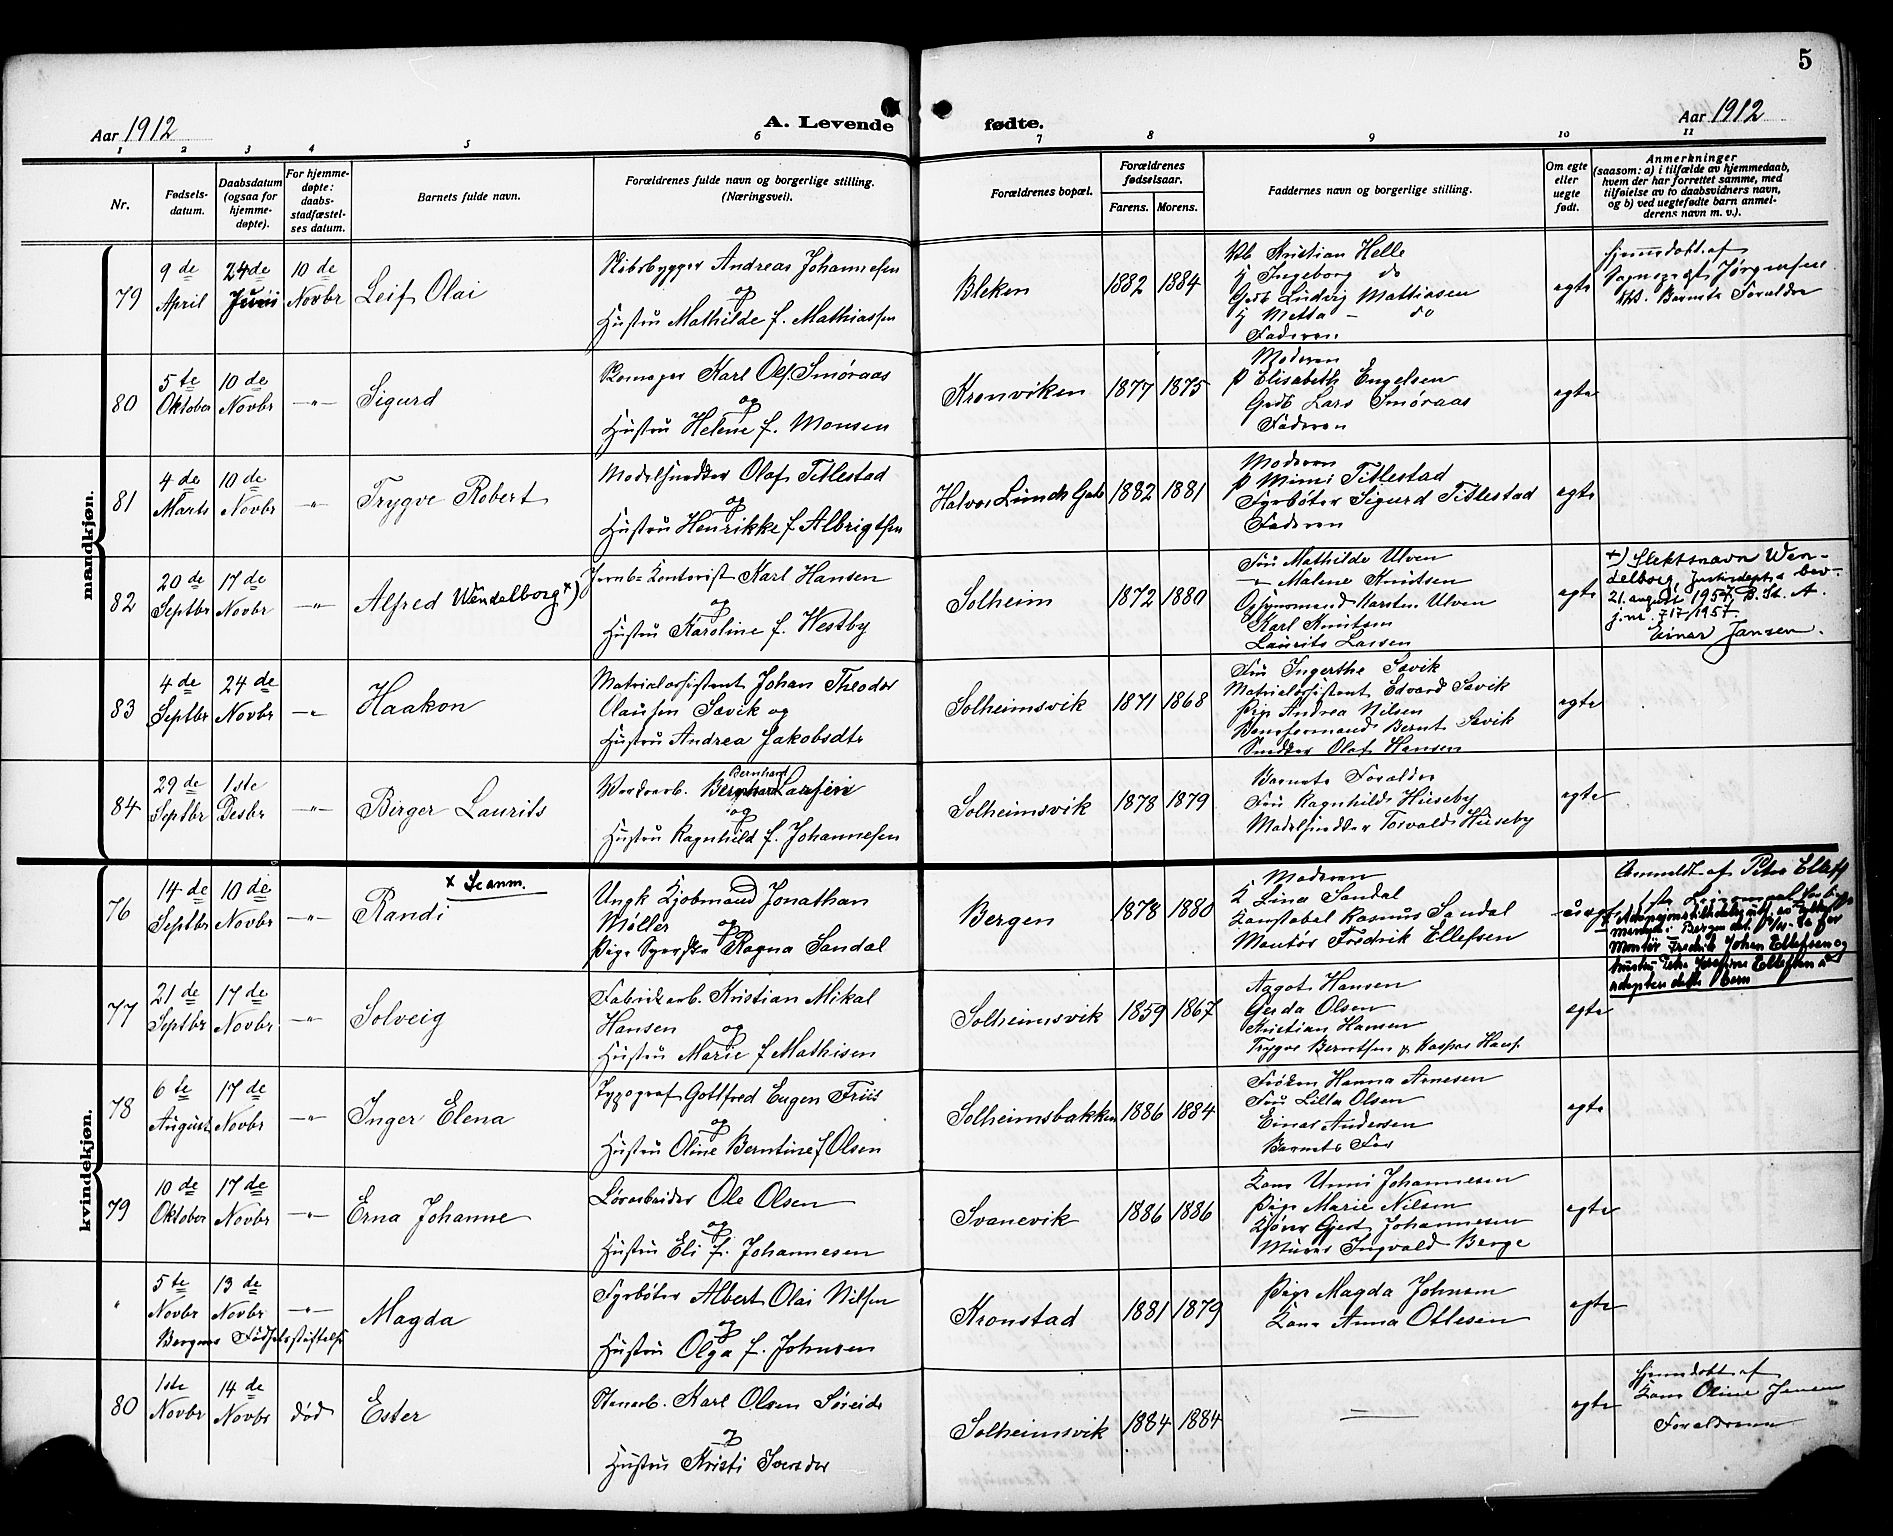 5
Aar 1912
A. Levende
fødte.
Aar 1912
1 2 3 4 5 6 7 8 9 10 11
Nr.
Fødsels-
datum.
Daabsdatum
(ogsaa for
hjemme-
døpte).
For hjemme-
døpte:
daabs-
stadfæstel-
ses datum.
Barnets fulde navn.
Forældrenes fulde navn og borgerlige stilling.
(Næringsvei).
Forældrenes bopæl.
Forældrenes
fødselsaar.
Farens. Morens.
Faddernes navn og borgerlige stilling.
Om egte
eller
uegte
født.
Anmerkninger
(saasom: a) i tilfælde av hjemmedaab,
hvem der har forrettet samme, med
tilføielse av to daabsvidners navn,
og b) ved uegtefødte barn anmel-
derens navn m. v.).
mandkjøn.
79
9de
April
24de
Junii
10de
Novbr
Leif Olai
Skibsbygger Andreas Johannesen
og
Hustru Mathilde f. Mathiassen
Bleken
1882 1884
Kristian Helle
Ingeborg do
Gdb Ludvig Mattiasen
Metta - do
Faderen
egte
hjemdøbt af
Sognepræst Jørgensen
Barnets Forældre
80
5te
Oktober
10de
Novbr
-"-
Sigurd
Karl Olaf Smøraas
og
Hustru Helene f. Monsen
Kronviken
1877 1875
Moderen
P Elisabeth Engelsen
Gdb Lars Smøraas
Faderen
egte
81
4de
Marts
10de
Novbr
-"-
Trygve Robert
Modelsnedker Olaf Titlestad
og
Hustru Henrikke f. Albrigtsen
Halvor Lunds Gade
1882 1881
Moderen
P Mimi Titlestad
Fyrbøter Sigurd Titlestad
Faderen
egte
82
20de
Septbr
17de
Novbr
-"-
Alfred Wendelborg x)
Jernb-Kontorist Karl Hansen
og
Hustru Karoline f. Westby
Solheim
1872 1880
Fru Mathilde Ulven
-"- Malene Knutsen
Opsynsmand Karsten Ulven
Karl Knutsen
Laurits Larsen
egte
x) Slektsnavn Wen-
delborg, Justisdept.s bev.
21. august 1957, B. St. A.
j.nr. 717/1957.
Einar Jansen.
83
4de
Septbr
24de
Novbr
-"-
Haakon
Matrialassistent Johan Theodor
Clausen Sævik og
Hustru Andrea Jakobsdtr
Solheimsvik
1871 1868
Fru Ingerthe Sævik
Matrialassistent Edvard Sævik
Pige Andrea Nilsen
Baneformand Bernt Sævik
Snedker Olaf Hansen
egte
84
29de
Septbr
1ste
Desbr
-"-
Birger Laurits
Bernhard
Verdsarb. Larsen
og
Hustru Ragnhild f. Johannesen
Solheimsvik
1878 1879
Barnets Forældre
Fru Ragnhild Huseby
Modelsnedker Torvald Huseby
egte
kvindekjøn.
76
14de
Septbr
10de
Novbr
-"-
x Se anm.
Randi
Ungk Kjøbmand Jonathan
Møller og
Pige Ragna Sandal
Bergen
1878 1880
Moderen
K Lina Sandal
Konstabel Rasmus Sandal
Montør Fredrik Ellefsen
uegte
Anmeldt af Petra Ellefs
Adopsjonsbevilling
Bergen
Montør Fredrik Johan Ellefsen og
hustru Petra Josefine Ellefsen
adopter dette barn
77
21de
Septbr
17de
Novbr
-"-
Solveig
Fabrikarb. Kristian Mikal
Hansen og
Hustru Marie f. Mathisen
Solheimsvik
1859 1867
Aagot Hansen
Gerda Olsen
Kristian Hansen
Trygve Berntsen & Kaspar Hans.
egte
78
6te
August
17de
Novbr
-"-
Inger Elena
Typograf Gottfred Eugen Friis
og
Hustru Oline Berntine f Olsen
Solheimsbakken
1886 1884
Frøken Hanna Arnesen
Fru Lilla Olsen
Einar Andersen
Barnets Far
egte
79
10de
Oktober
17de
Novbr
-"-
Erna Johanne
Løsarbeider Ole Olsen
og
Hustru Eli f. Johannesen
Svanevik
1886 1886
Kone Unni Johannesen
Pige Marie Nilsen
Gjert Johannesen
Murer Ingvald Berge
egte
"
5te
Novbr
13de
Novbr
-"-
Bergens Fødselsstiftelse
Magda
Fyrbøter Albert Olai Nilsen
og
Hustru Olga f. Johnsen
Kronstad
1881 1879
Pige Magda Johnsen
Kone Anna Ottesen
egte
80
1ste
Novbr
14de
Novbr
død
Ester
Stenarb. Karl Olsen Søreide
og
Hustru Kristi Sversdtr
Solheimsvik
1884 1884
egte
hjemdøbt af
Kone Oline Jensen
Forældrene